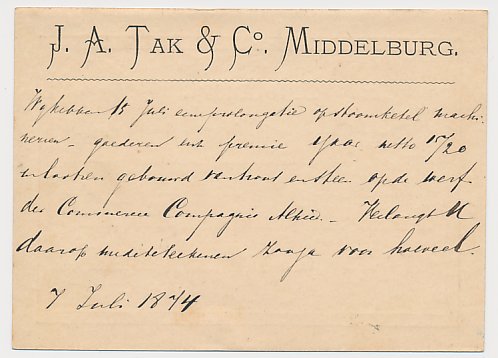 J. A. TAK & Co. MIDDELBURG.
Wij hebben 15 Juli een prolongatie op stoomketel machi-
nerien - goederen enz premie 1 jaar netto 17/20
in loodsen gebouwd van hout en steen op de werf
der Commercie Compagnie Alhier. - Verlangt U
daarop mede te teekenen zoo ja voor hoeveel.
7 Juli 1874